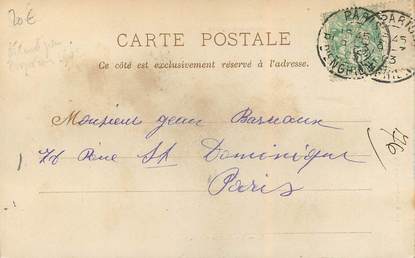 20€
CARTE POSTALE
Ce côté est exclusivement réservé à l'adresse.
PARIS
ENGHIEN
Monsieur Jean Barnaux
76 Rue St Dominique
Paris